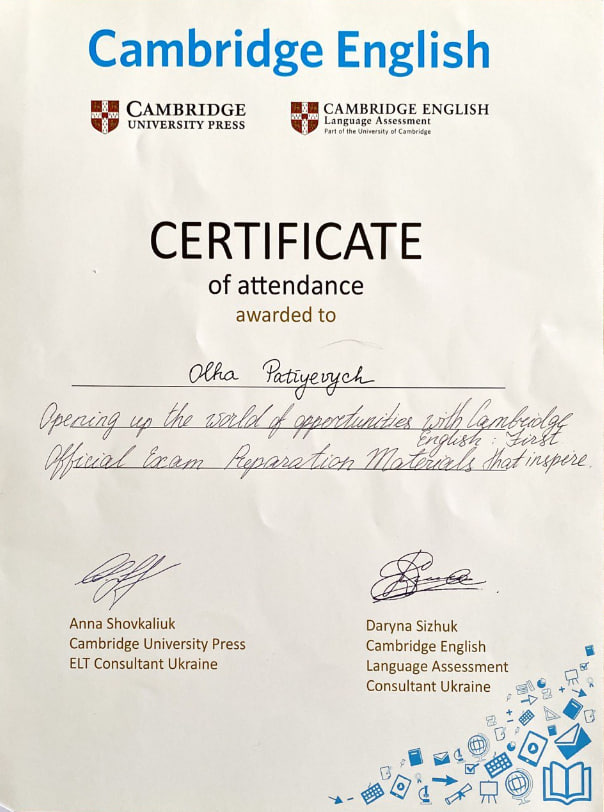 Cambridge English
CAMBRIDGE
UNIVERSITY PRESS
CAMBRIDGE ENGLISH
Language Assessment
Part of the University of Cambridge
CERTIFICATE
of attendance
awarded to
Olha Patiyevych
Opening up the world of opportunities with Cambridge
English: First
Official Exam Preparation Materials that inspire.
Anna Shovkaliuk
Cambridge University Press
ELT Consultant Ukraine
Daryna Sizhuk
Cambridge English
Language Assessment
Consultant Ukraine